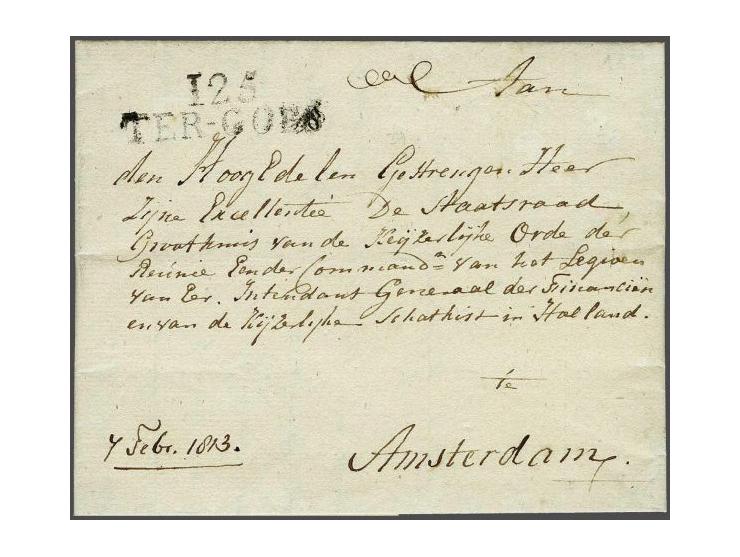 125
TER-GOES
Aan
den HoogEdelen Gestrengen Heer
Zijne Excellentie De Staatsraad
Grootkruis van de Keijzerlijke Orde der
Reunie Een der Commandn van het Legioen
van Eer, Intendant Generaal der Financiën
en van de Kijzerlijke Schatkist in Holland.
te
7 Febr. 1813.
Amsterdam.